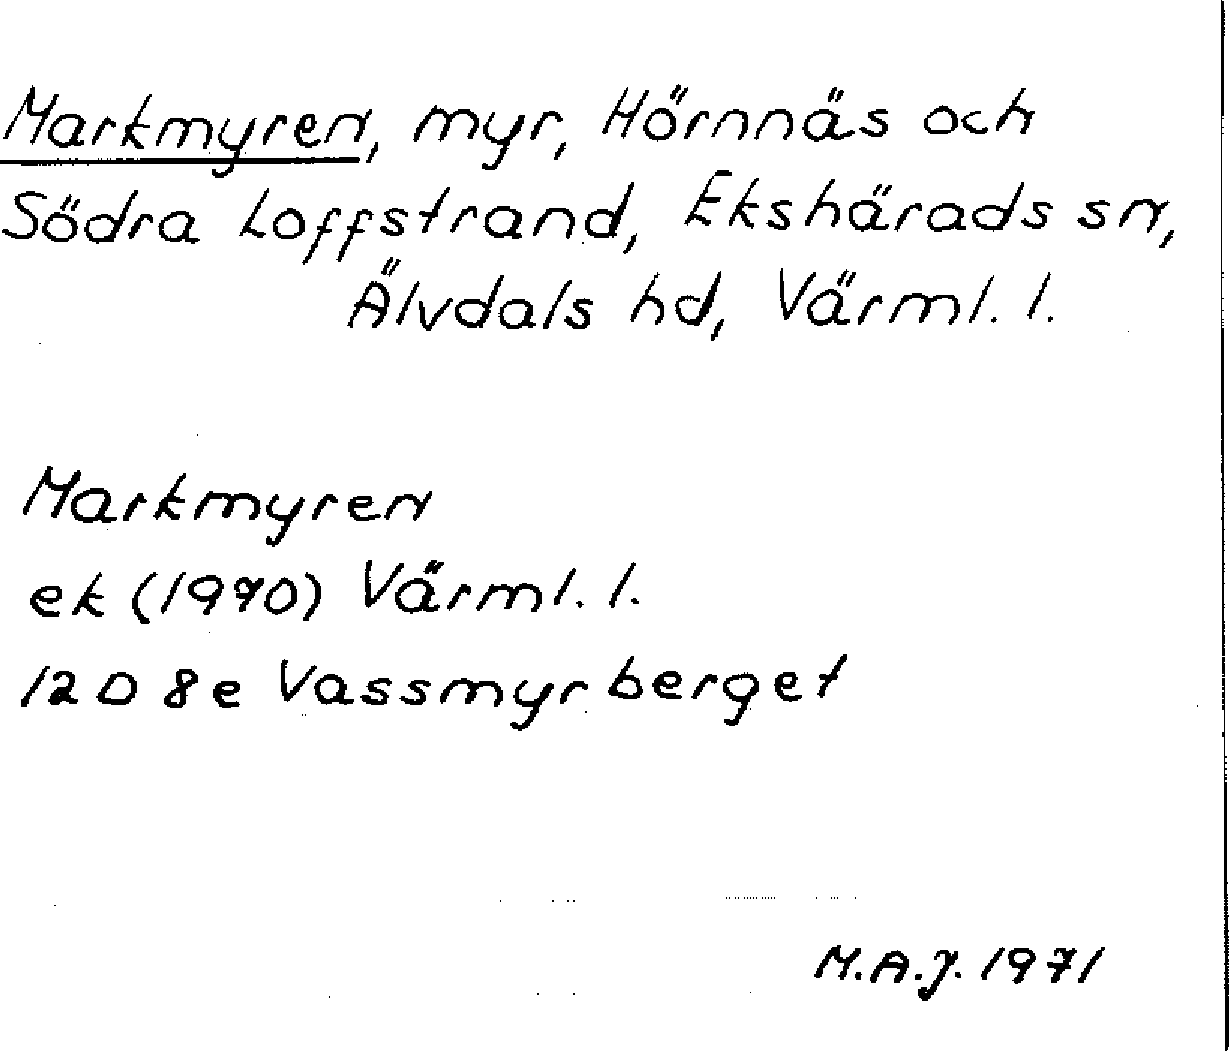 Markmyren, myr, Hörnnäs och
Södra Loffstrand, Ekshärads sn,
Älvdals hd, Värml. l.
Markmyren
ek (1970) Värml. l.
12 D 8e Vassmyrberget
M.A.J. 1971